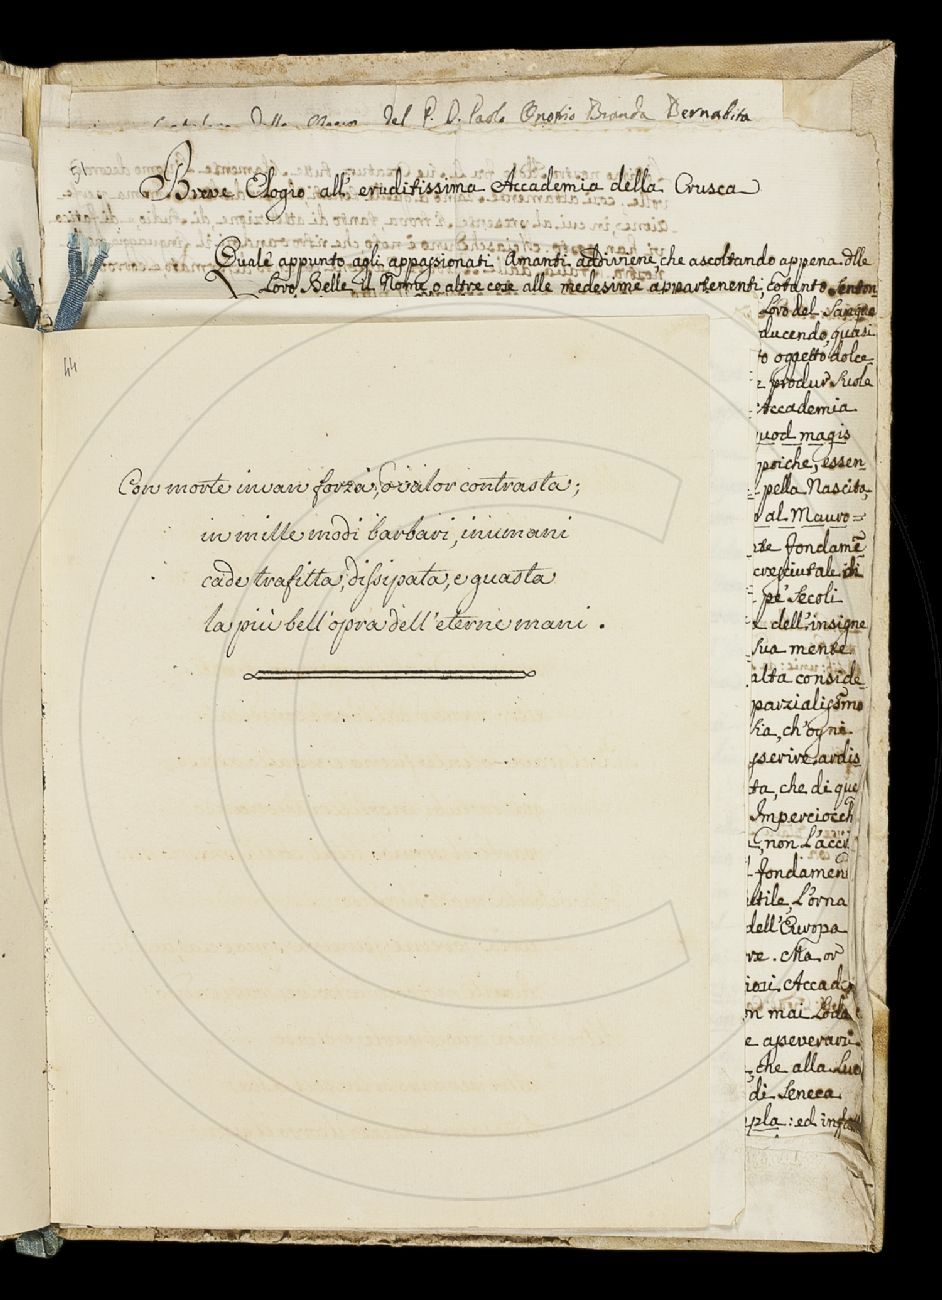 del P. D. Paolo Onofrio Branda Bernabita
51
Breve Elogio all' eruditissima Accademia della Crusca
Quale appunto agli appassionati Amanti addiviene che ascoltando appena dlle
Loro Belle il Nome o altre cose alle medesime appartenenti, cotanto senton
Loro del Sangue
ducendo, quasi
to oggetto dolce
produr suole
Accademia
quod magis
poiche, essen
pella Nascita,
o al Mauro=
fondamē
cresciutale di
pe' Secoli
dell'insigne
sua mente
alta conside
parzialissmo
sia, ch'ogni
sserire ardis
ta, che di que
Imperciocch
non l'acci
fondamen
tile, L'orna
dell'Europa
re. Ma or
iosi Accad
n mai Loda
e asseverari
, che alla Luc
di Seneca
pla: ed inf
44
Con morte invan forza, o valor contrasta;
in mille modi barbari, inumani
cade trafitta, dissipata, e guasta
la più bell'opra dell'eterne mani.